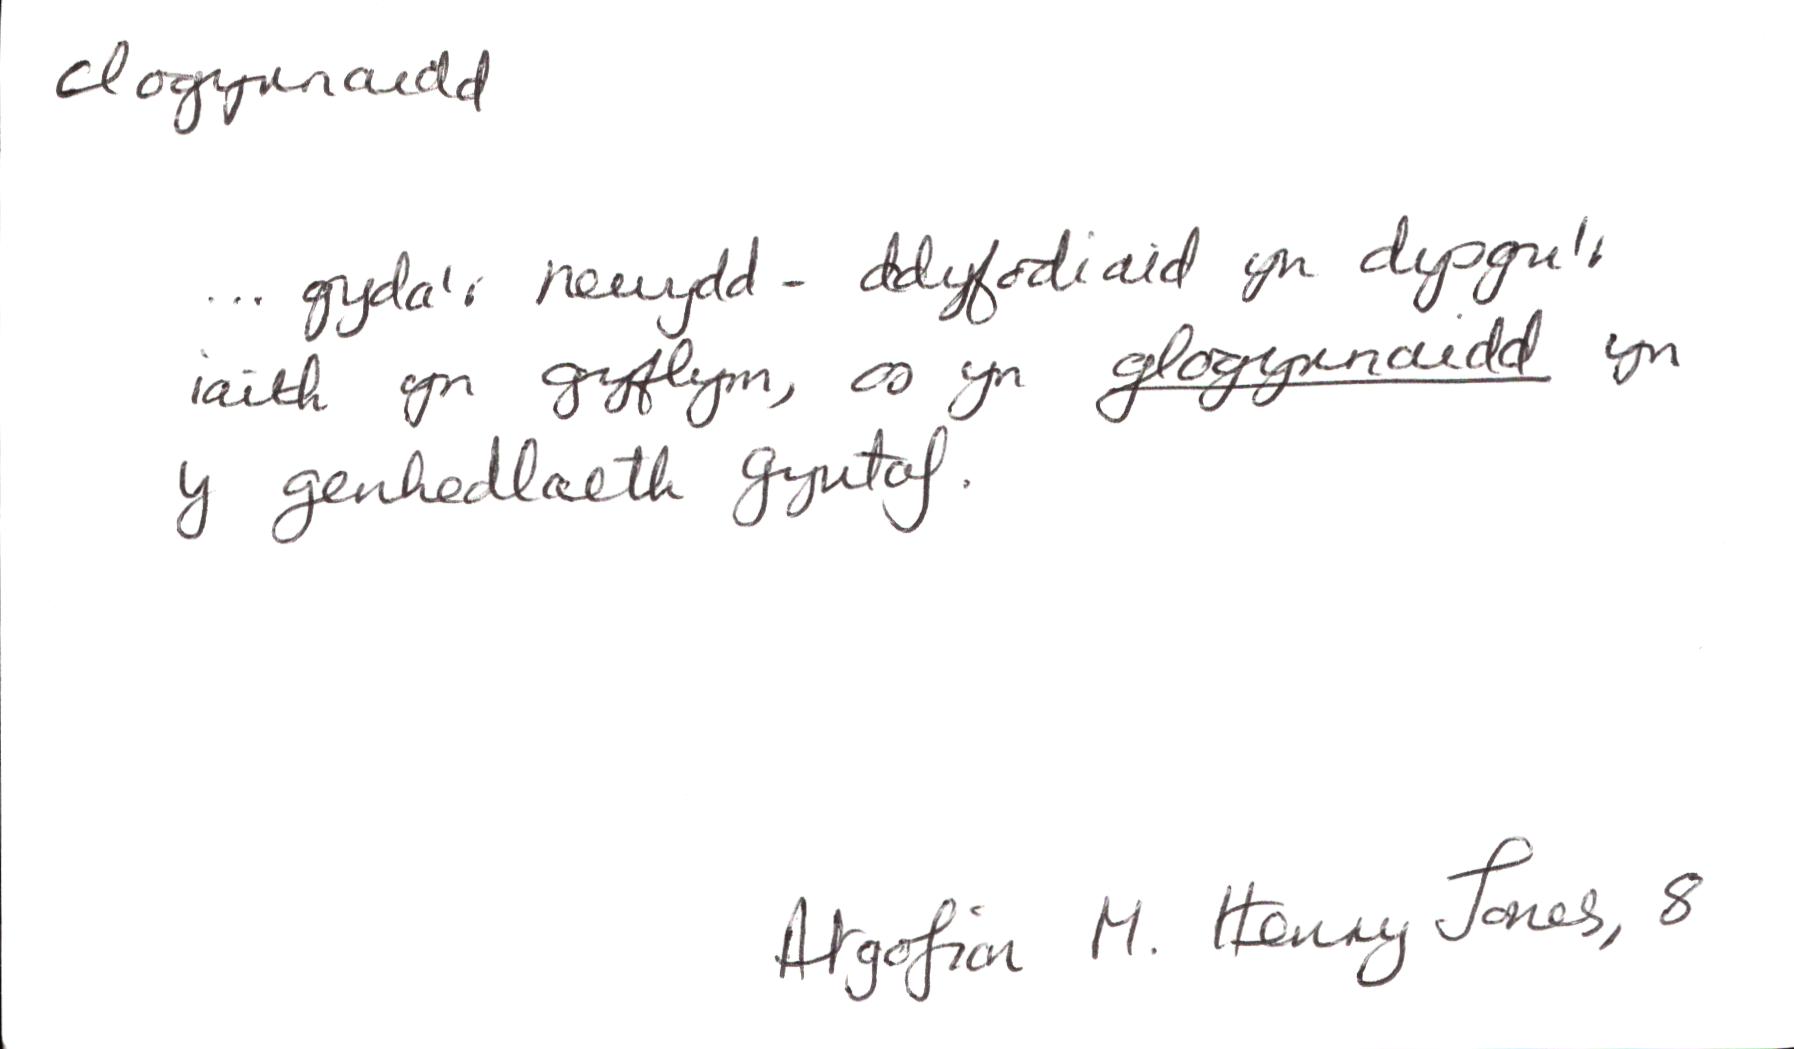 clogyrnaidd
... gyda'r newydd-ddyfodiaid yn dysgu'r
iaith yn gyflym, os yn glogyrnaidd yn
y genhedlaeth gyntaf.
Atgofion M. Henry Jones, 8